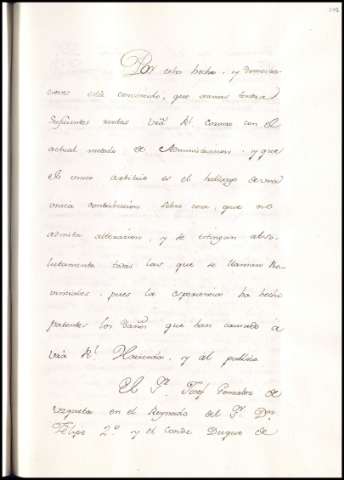 Por estos hechos, y demostra-
ciones está conocido, que nunca tendrá
suficientes rentas Vrã Rl. Corona con el
actual metodo de Administracion, y que
el unico arbitrio es el hallazgo de una
unica contribucion sobre cosa, que no
admita alteracion, y se extingan abso-
lutamente todas las que se llaman Pro-
vinciales, pues la experiencia ha hecho
patentes los daños que han causado á
Vrã Rl. Hacienda, y al publico
El Pe. Josef Gonzalez de
en el Reynado del Sr. Dn.
Felipe 2º. y el Conde Duque de